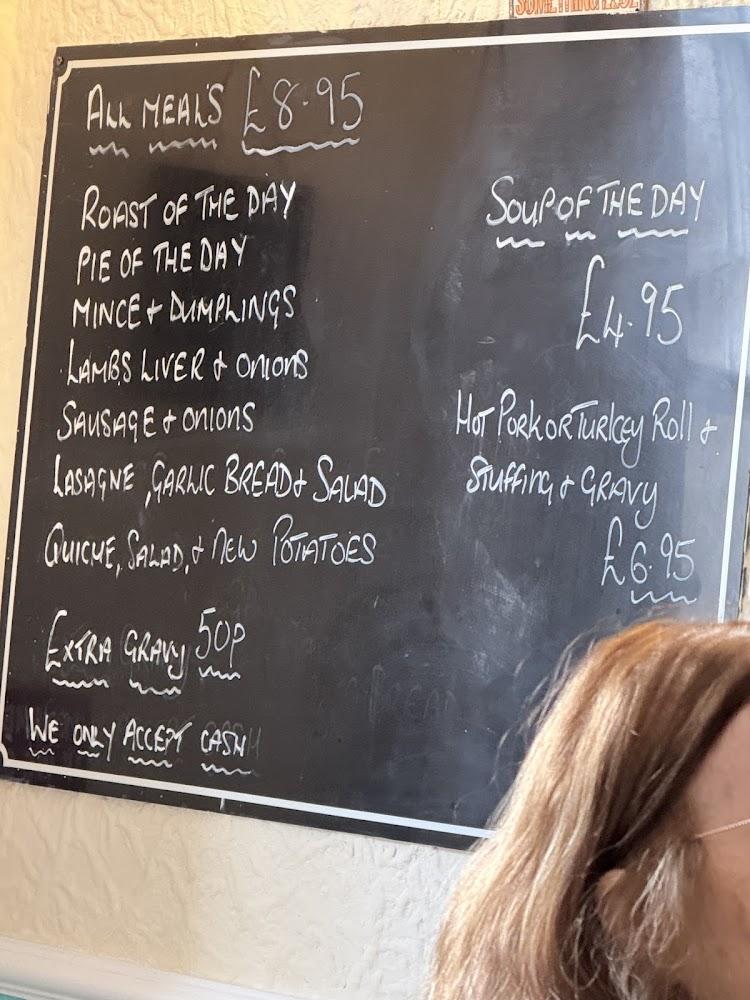 SOMETHING ELSE
ALL MEALS £8.95
ROAST OF THE DAY
PIE OF THE DAY
MINCE & DUMPLINGS
LAMBS LIVER & ONIONS
SAUSAGE & ONIONS
LASAGNE, GARLIC BREAD & SALAD
QUICHE, SALAD, & NEW POTATOES
EXTRA GRAVY 50P
WE ONLY ACCEPT CASH
SOUP OF THE DAY
£4.95
HOT PORK OR TURKEY ROLL &
STUFFING & GRAVY
£6.95